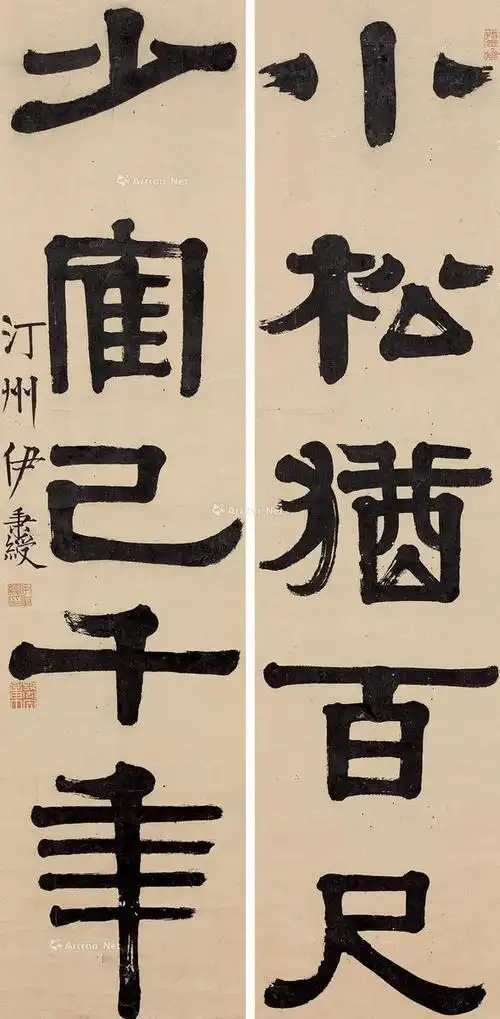 小松猶百尺
少寉已千年
汀州伊秉綬
Artron.Net
Artron.Net
Artron.Net